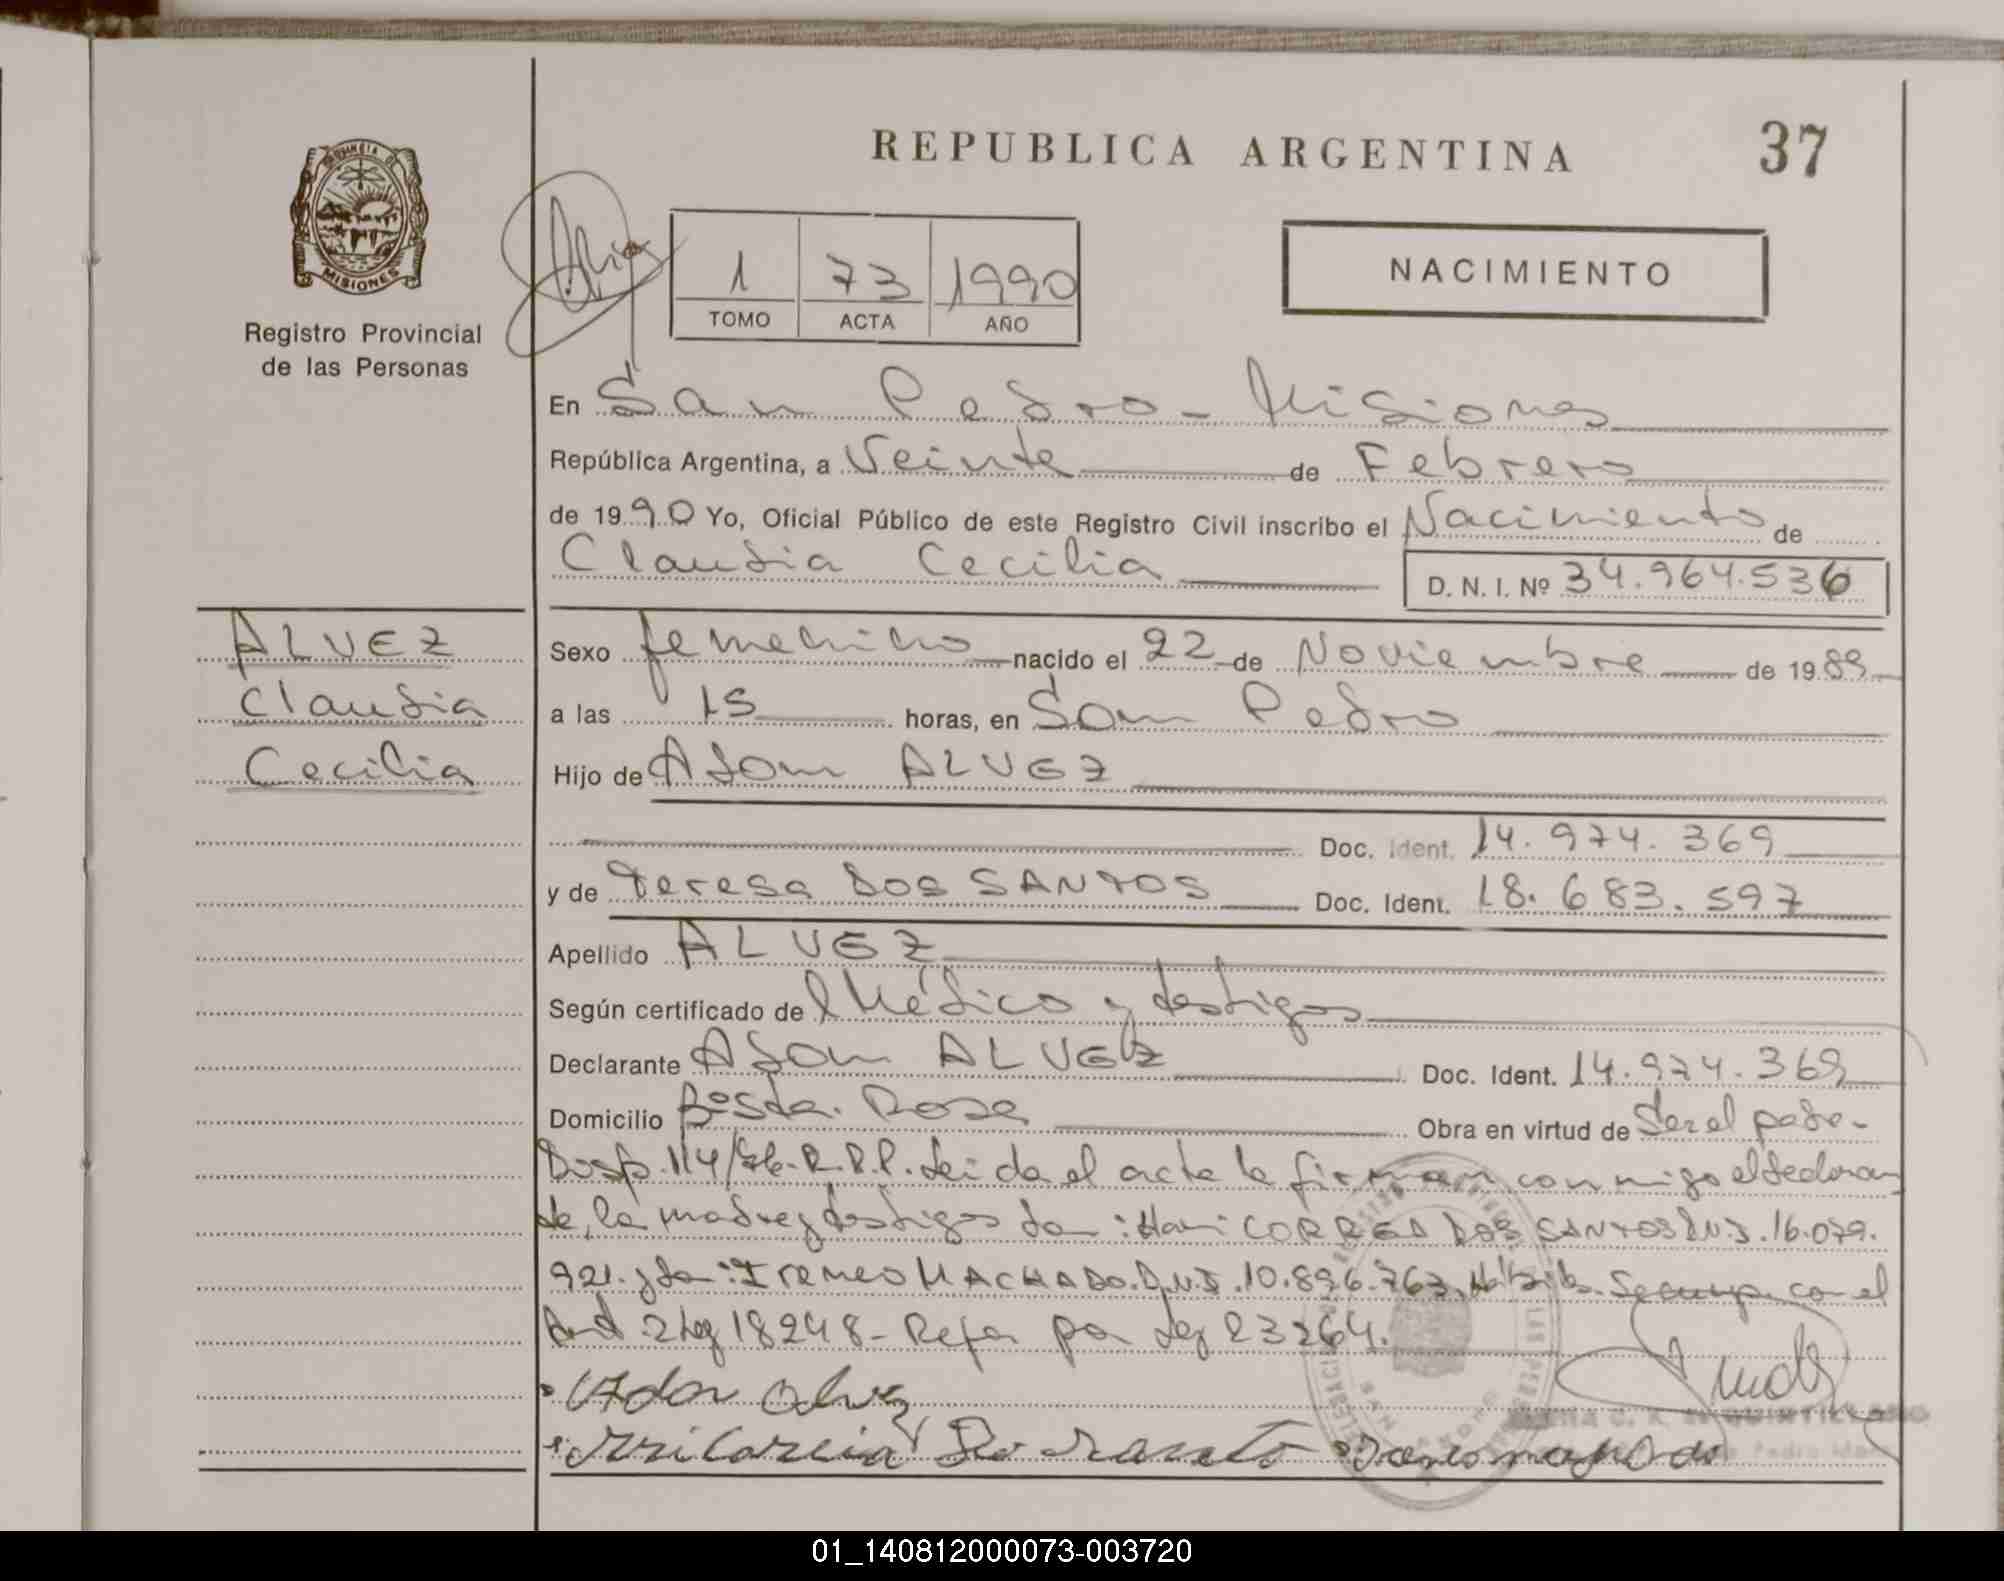 REPUBLICA ARGENTINA
37
PROVINCIA DE
MISIONES
Registro Provincial
de las Personas
1 73 1990
TOMO ACTA AÑO
NACIMIENTO
En San Pedro - Misiones
República Argentina, a Veinte de Febrero
de 1990 Yo, Oficial Público de este Registro Civil inscribo el Nacimiento de
Claudia Cecilia
D. N. I. Nº 34.964.536
ALVEZ
Claudia
Cecilia
Sexo femenino nacido el 22 de Noviembre de 1989
a las 15 horas, en San Pedro
Hijo de Adam ALVEZ
Doc. Ident. 14.974.369
y de Teresa DOS SANTOS Doc. Ident. 18.683.597
Apellido ALVEZ
Según certificado de Médico y testigos
Declarante Adam ALVEZ Doc. Ident. 14.974.369
Domicilio Bosta. Rosa Obra en virtud de Ser el padre-
Disp. 114/86-R.P.P. Leida el acta la firman conmigo el declaran
te, la madre y testigos Don: CORREA DOS SANTOS D.N.I. 16.079.
921. y Don: Ireneo MACHADO. D.N.I. 10.896.763, con el
2 Ley 18248- Refor por Ley 23264.
Adan Alvez
Dos Santos